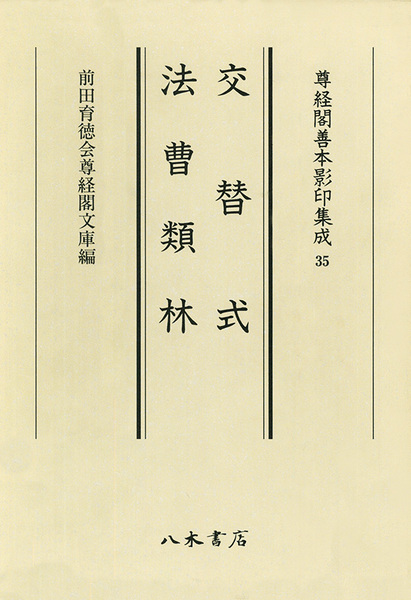 尊経閣善本影印集成 35
交替式
法曹類林
前田育徳会尊経閣文庫編
八木書店